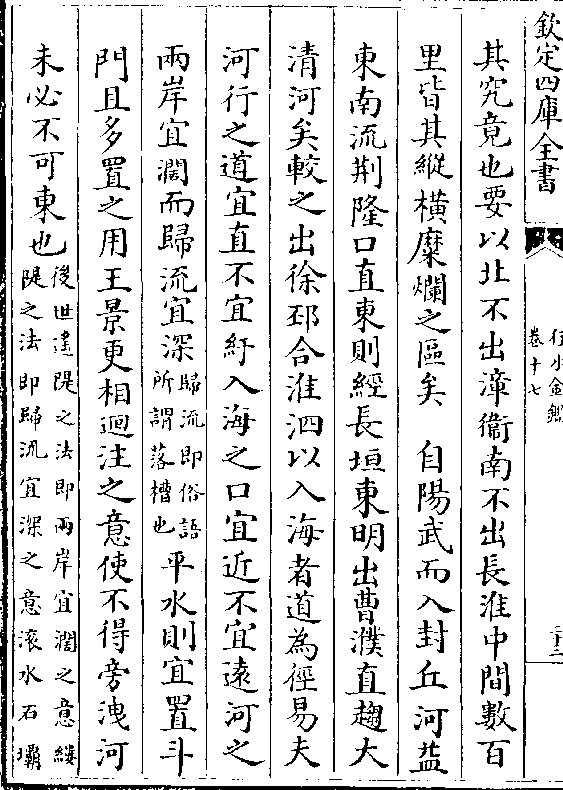 欽定四庫全書
行水金鑑
卷十七
其究竟也要以北不出漳衞南不出長淮中間數百
里皆其縱橫糜爛之區矣　自陽武而入封丘河益
東南流荆隆口直東則經長垣東明出曹濮直趨大
清河矣較之出徐邳合淮泗以入海者道為徑易夫
河行之道宜直不宜紆入海之口宜近不宜遠河之
兩岸宜濶而歸流宜深歸流即俗語所謂落槽也平水則宜置斗
門且多置之用王景更相迴注之意使不得旁洩河
未必不可東也後世遙隄之法即兩岸宜濶之意縷隄之法即歸流宜深之意滚水石壩